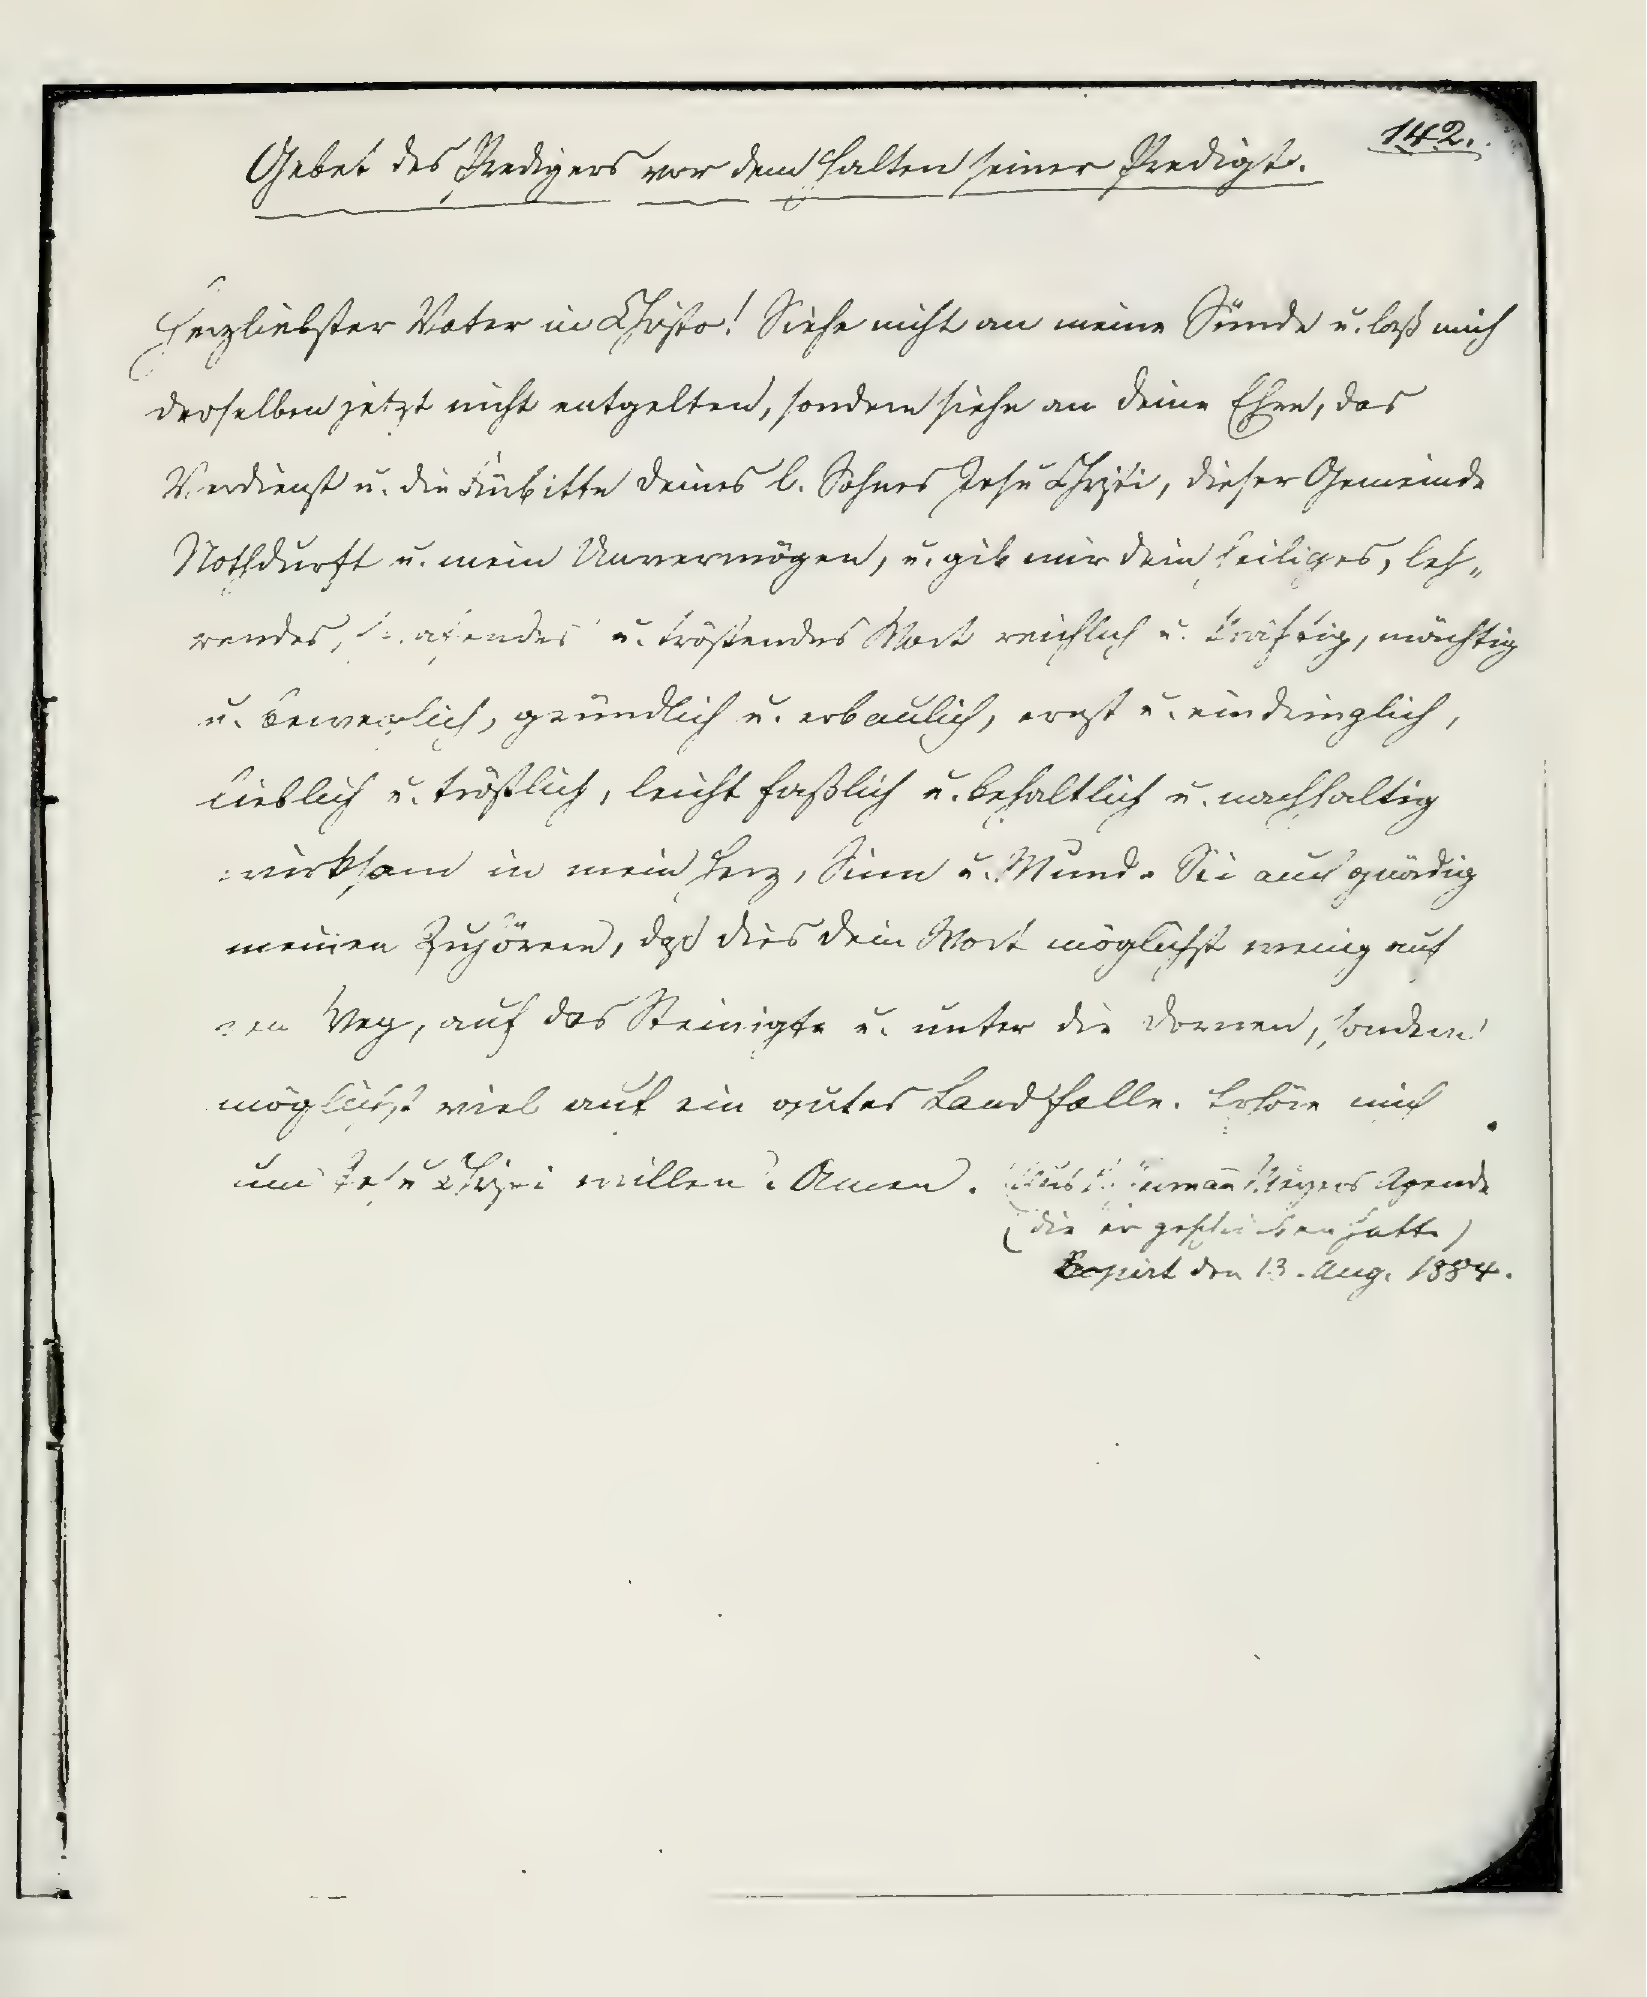 142.
Gebet des Predigers vor dem Halten seiner Predigt.
Herzliebster Vater in Christo! Siehe nicht an meine Sünde u. laß mich
derselben jetzt nicht entgelten, sondern siehe an deine Ehre, das
Verdienst u. die Fürbitte deines l. Sohnes Jesu Christi, dieser Gemeinde
Nothdurft u. mein Unvermögen, u. gib mir dein heiliges, leh-
rendes, u. tröstendes Wort reichlich u. kräftig, mächtig
u. beweglich, gründlich u. erbaulich, ernst u. eindringlich,
lieblich u. tröstlich, leicht faßlich u. behaltlich u. nachhaltig
wirksam in mein Herz, Sinn u. Mund. Sei auch gnädig
meinen Zuhörern, daß dies dein Wort möglichst wenig auf
den Weg, auf das Steinigte u. unter die Dornen, sondern
möglichst viel auf ein gutes Land falle. Erhöre mich
um Jesu Christi willen. Amen. Aus Meyers Agende
(die er geschrieben hatte)
Copirt den 13. Aug. 1884.